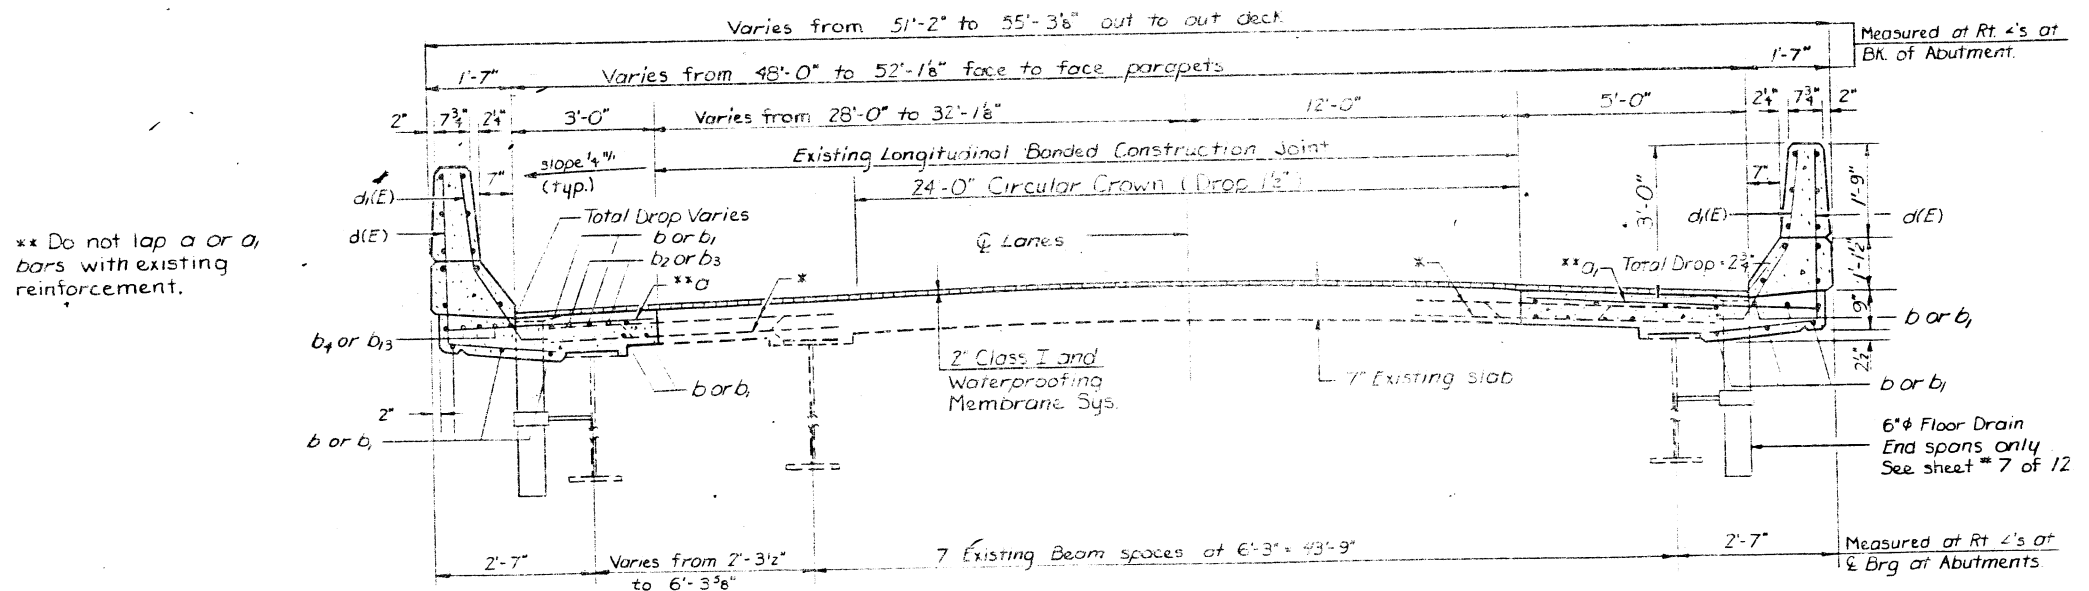 Varies from 51'-2" to 55'-3⅛" out to out deck
Measured at Rt. ∠'s at
BK. of Abutment.
1'-7"
Varies from 48'-0" to 52'-1⅛" face to face parapets
1'-7"
2"
7¾"
2¼"
3'-0"
Varies from 28'-0" to 32'-1⅛"
12'-0"
5'-0"
2¼"
7¾"
2"
slope ¼"/1'
(typ.)
Existing Longitudinal Bonded Construction Joint
7"
24'-0" Circular Crown (Drop 1½")
3'-0"
7"
1'-9"
d₁(E)
d(E)
Total Drop Varies
b or b₁
b₂ or b₃
**a
*
℄ Lanes
*
**a₁
Total Drop = 2¾"
d₁(E)
d(E)
1'-1½"
** Do not lap a or a₁
bars with existing
reinforcement.
9"
b or b₁
b₄ or b₁₃
2½"
2" Class I and
Waterproofing
Membrane Sys.
7" Existing slab
b or b₁
b or b₁
2"
b or b₁
6"ϕ Floor Drain
End spans only
See sheet # 7 of 12
2'-7"
Varies from 2'-3½"
to 6'-3⅝"
7 Existing Beam spaces at 6'-3" = 43'-9"
2'-7"
Measured at Rt ∠'s at
℄ Brg at Abutments